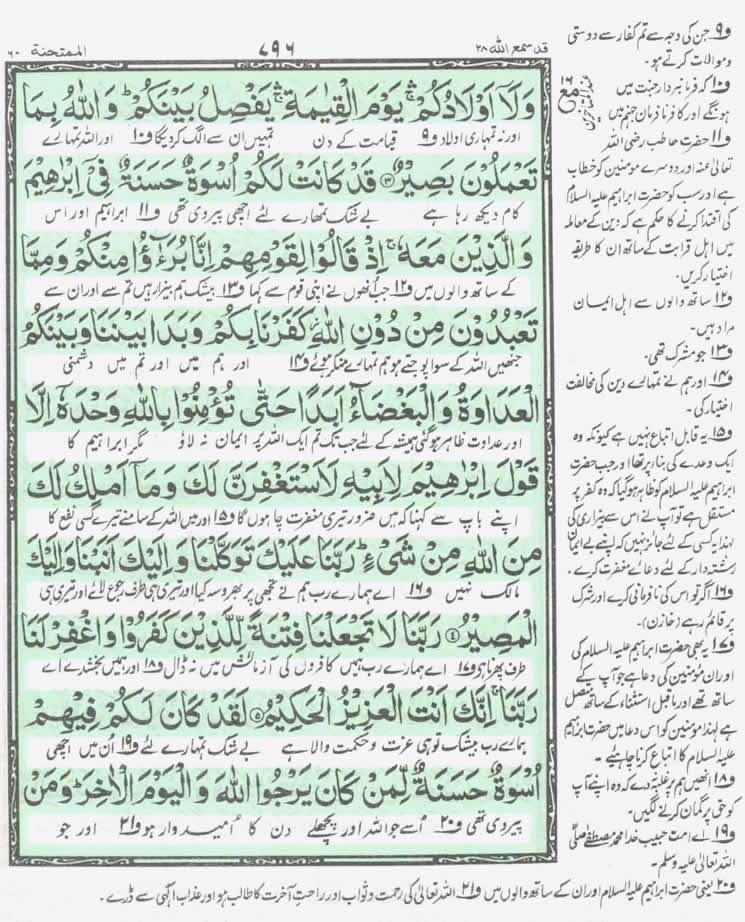 الممتحنة ۶۰
۷۹۶
قد سمع اللہ ۲۸
وَلَآ اَوْلَادُكُمْ ۚۛ يَوْمَ الْقِيٰمَةِ ۚۛ يَفْصِلُ بَيْنَكُمْ ؕ وَاللّٰهُ بِمَا
اور نہ تمہاری اولاد ف۹ قیامت کے دن تمہیں ان سے الگ کردیگا ف۱۰ اور اللہ تمہارے
تَعْمَلُوْنَ بَصِيْرٌ ﴿۳﴾ قَدْ كَانَتْ لَكُمْ اُسْوَةٌ حَسَنَةٌ فِيْۤ اِبْرٰهِيْمَ
کام دیکھ رہا ہے بے شک تمہارے لئے اچھی پیروی تھی ف۱۱ ابراہیم اور اس
وَالَّذِيْنَ مَعَهٗ ۚ اِذْ قَالُوْا لِقَوْمِهِمْ اِنَّا بُرَءٰٓؤُا مِنْكُمْ وَمِمَّا
کے ساتھ والوں میں ف۱۲ جب انھوں نے اپنی قوم سے کہا ف۱۳ بیشک ہم بیزار ہیں تم سے اور ان سے
تَعْبُدُوْنَ مِنْ دُوْنِ اللّٰهِ ؗ كَفَرْنَا بِكُمْ وَبَدَا بَيْنَنَا وَبَيْنَكُمُ
جنھیں اللہ کے سوا پوجتے ہو ہم تمہارے منکر ہوئے ف۱۴ اور ہم میں اور تم میں دشمنی
الْعَدَاوَةُ وَالْبَغْضَآءُ اَبَدًا حَتّٰى تُؤْمِنُوْا بِاللّٰهِ وَحْدَهٗۤ اِلَّا
اور عداوت ظاہر ہوگئی ہمیشہ کے لئے جب تک تم ایک اللہ پر ایمان نہ لاؤ مگر ابراہیم کا
قَوْلَ اِبْرٰهِيْمَ لِاَبِيْهِ لَاَسْتَغْفِرَنَّ لَكَ وَمَاۤ اَمْلِكُ لَكَ
اپنے باپ سے کہنا کہ میں ضرور تیری مغفرت چاہوں گا ف۱۵ اور میں اللہ کے سامنے تیرے کسی نفع کا
مِنَ اللّٰهِ مِنْ شَيْءٍ ؕ رَبَّنَا عَلَيْكَ تَوَكَّلْنَا وَاِلَيْكَ اَنَبْنَا وَاِلَيْكَ
مالک نہیں ف۱۶ اے ہمارے رب ہم نے تجھی پر بھروسہ کیا اور تیری ہی طرف رجوع لائے اور تیری ہی
الْمَصِيْرُ ﴿۴﴾ رَبَّنَا لَا تَجْعَلْنَا فِتْنَةً لِّلَّذِيْنَ كَفَرُوْا وَاغْفِرْ لَنَا
طرف پھرنا ہے ف۱۷ اے ہمارے رب ہمیں کافروں کی آزمائش میں نہ ڈال ف۱۸ اور ہمیں بخشدے اے
رَبَّنَا ۚ اِنَّكَ اَنْتَ الْعَزِيْزُ الْحَكِيْمُ ﴿۵﴾ لَقَدْ كَانَ لَكُمْ فِيْهِمْ
ہمارے رب بیشک تو ہی عزت و حکمت والا ہے بے شک تمہارے لئے ف۱۹ اُن میں اچھی
اُسْوَةٌ حَسَنَةٌ لِّمَنْ كَانَ يَرْجُوا اللّٰهَ وَالْيَوْمَ الْاٰخِرَ ؕ وَمَنْ
پیروی تھی ف۲۰ اُسے جو اللہ اور پچھلے دن کا امیدوار ہو ف۲۱ اور جو
ف۹ جن کی وجہ سے تم کفار سے دوستی
و موالات کرتے ہو۔
ف۱۰ کہ فرمانبردار جنت میں
ہونگے اور کافر نافرمان جہنم میں
ف۱۱ حضرت حاطب رضی اللہ
تعالیٰ عنہ اور دوسرے مومنین کو خطاب
ہے اور سب کو حضرت ابراہیم علیہ السلام
کی اقتدا کرنے کا حکم ہے کہ دین کے معاملہ
میں اہل قرابت کے ساتھ ان کا طریقہ
اختیار کریں۔
ف۱۲ ساتھ والوں سے اہل ایمان
مراد ہیں۔
ف۱۳ جو مشرک تھی۔
ف۱۴ اور ہم نے تمہارے دین کی مخالفت
اختیار کی۔
ف۱۵ یہ قابل اتباع نہیں ہے کیونکہ وہ
ایک وعدے کی بنا پر تھا اور جب حضرت
ابراہیم علیہ السلام کو ظاہر ہوگیا کہ وہ کفر پر
مستقل ہے تو آپ نے اس سے بیزاری کی
لہذا یہ کسی کے لئے جائز نہیں کہ اپنے بے ایمان
رشتہ دار کے لئے دعائے مغفرت کرے۔
ف۱۶ اگر تو اس کی نافرمانی کرے اور شرک
پر قائم رہے (خازن)۔
ف۱۷ یہ بھی حضرت ابراہیم علیہ السلام کی
اور ان مؤمنین کی دعا ہے جو آپ کے
ساتھ تھے اور ماقبل استثناء کے ساتھ متصل
ہے لہذا مؤمنین کو اس دعا میں حضرت ابراہیم
علیہ السلام کا اتباع کرنا چاہئیے ۔
ف۱۸ انھیں ہم پر غلبہ نہ دے کہ وہ اپنے آپ
کو حق پر گمان کرنے لگیں۔
ف۱۹ اے امت حبیب خدا محمد مصطفےٰ صلی
اللہ تعالیٰ علیہ وسلم۔
ف۲۰ یعنی حضرت ابراہیم علیہ السلام اور ان کے ساتھ والوں میں ف۲۱ اللہ تعالیٰ کی رحمت و ثواب اور راحت آخرت کا طالب ہو اور عذاب الٰہی سے ڈرے۔